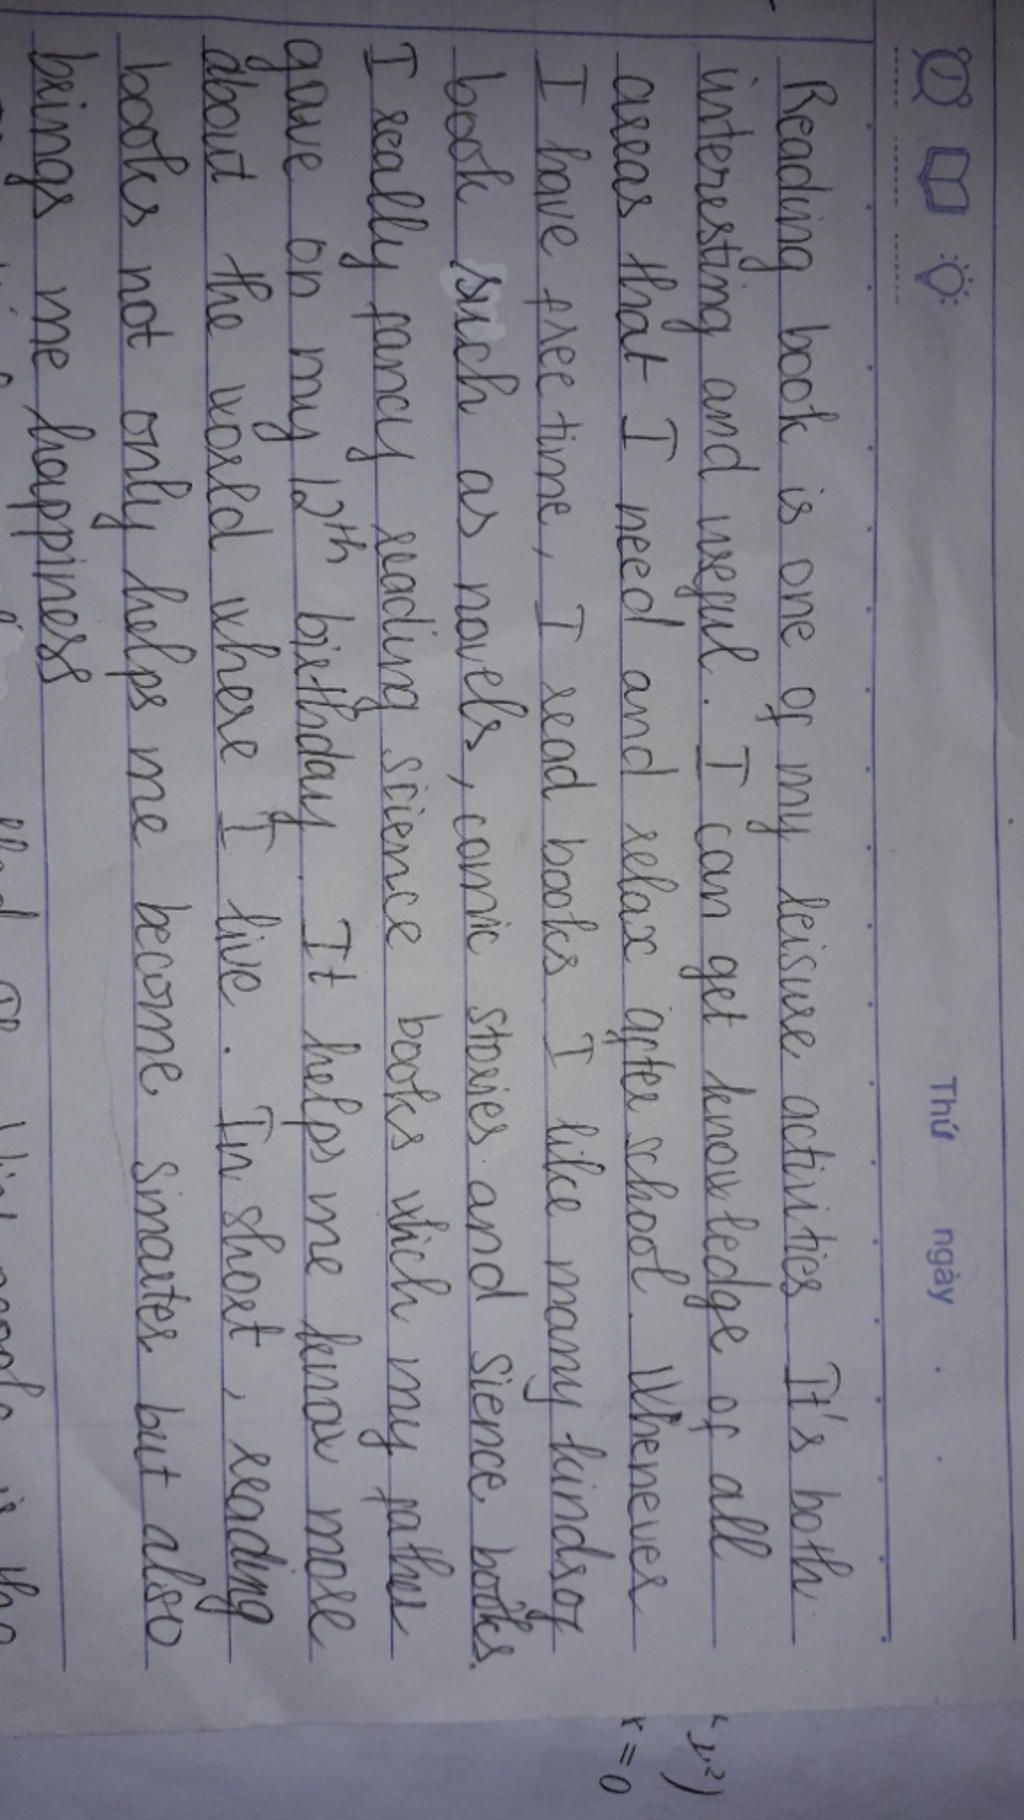 Thứ ngày
Reading book is one of my leisure activities. It's both
interesting and useful. I can get knowledge of all
areas that I need and relax after school. Whenever
I have free time, I read books. I like many kinds of
book such as novels, comic stories and sience books.
I really fancy reading science books which my father
gave on my 12th birthday. It helps me know more
about the world where I live. In short, reading
books not only helps me become smarter but also
brings me happiness
r = 0